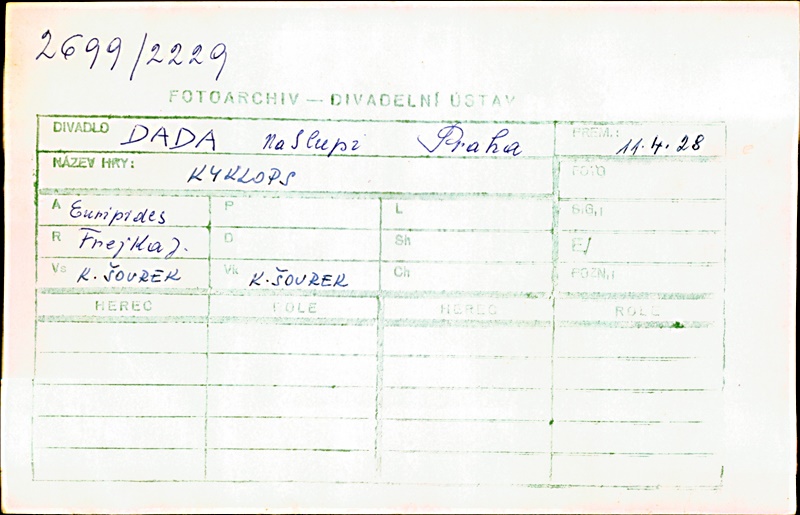 2699/2229
FOTOARCHIV — DIVADELNÍ ÚSTAV
DIVADLO DADA na Slupi Praha PREM.: 11.4.28
NÁZEV HRY: KYKLOPS FOTO
A Euripides P L S.G.:
R Frejka J. D Sh F/
Vs K. ŠOUREK Vk K. ŠOUREK Ch POZN.:
HEREC ROLE HEREC ROLE